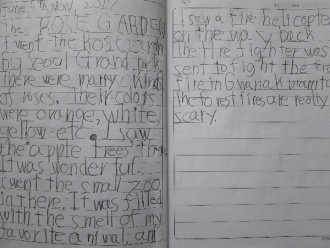 The ROSE GARDEN
I went the Rose Garden
by Seoul Grand park
There were many kinds
of roses. Their colors
were orange, white,
yellow etc. I saw
the apple trees
It was wonderful.
I went the small zoo
in there. It was filled
with the smell of my
favorite animal, and
I saw a fire helicopter
on the way back
The fire fighter was
sent to fight the
fire in Gwanak mountain
The forest fires are really
scary.